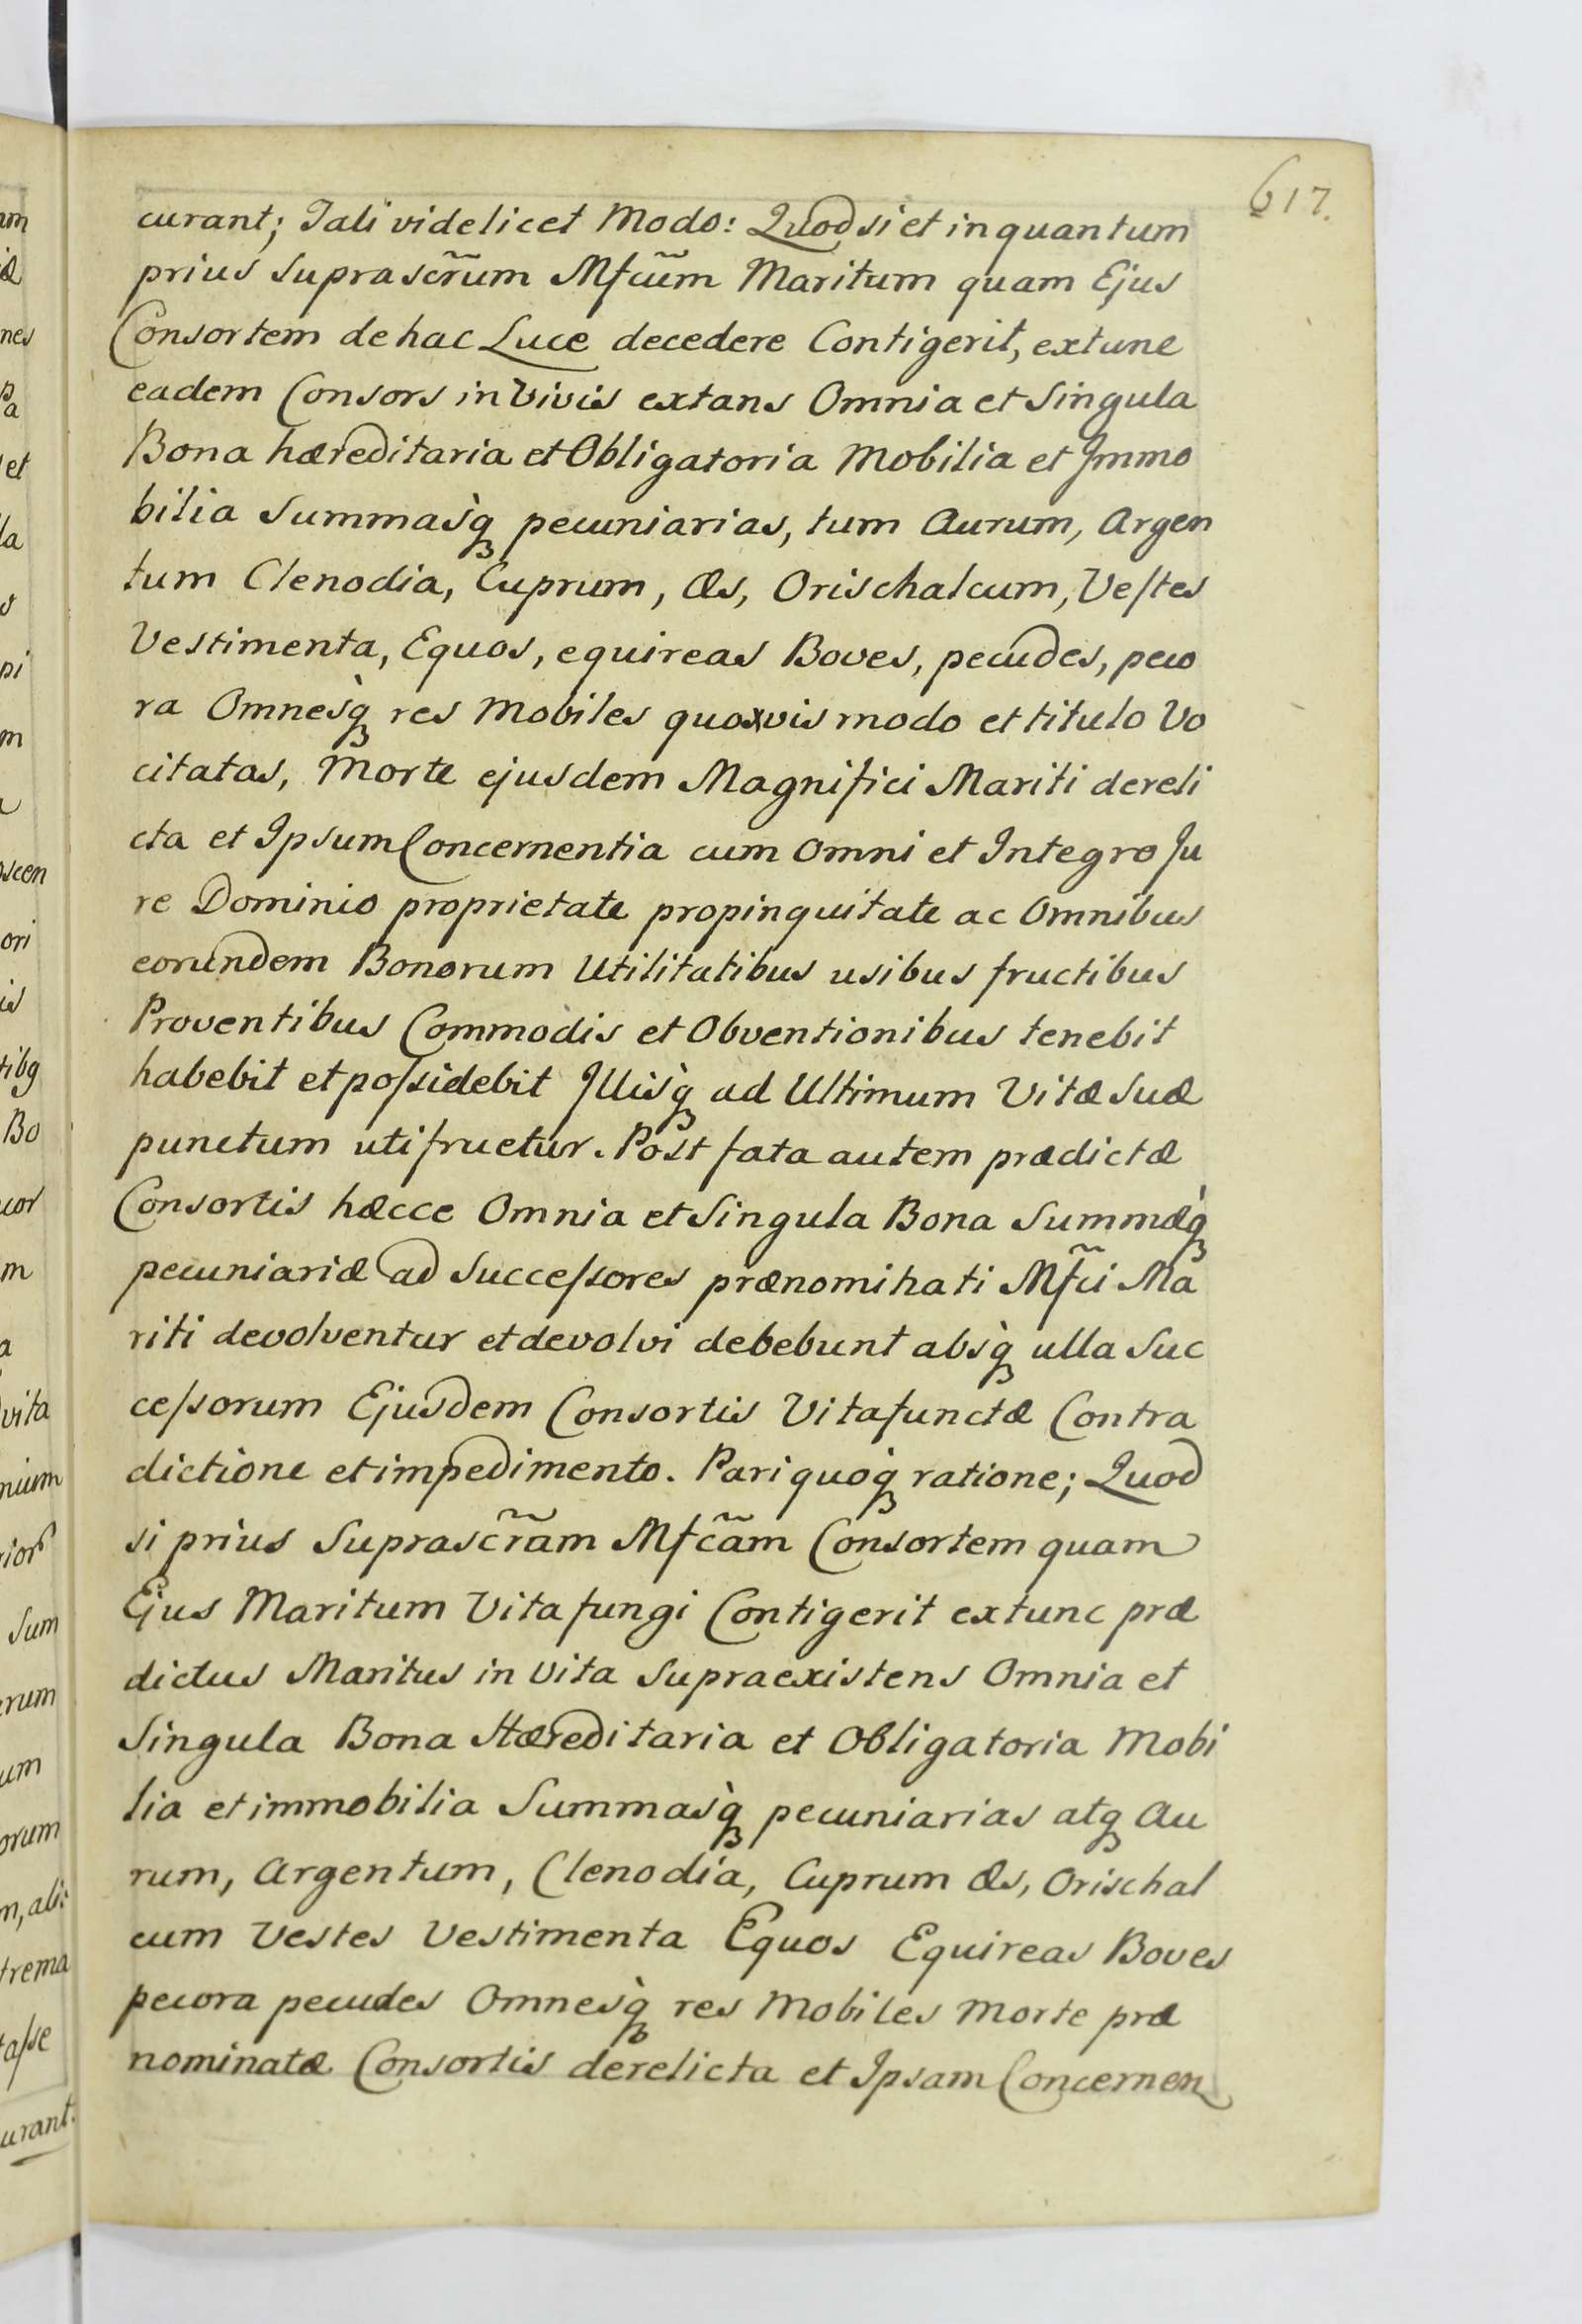 617.
curant; Tali videlicet Modo: Quod si et in quantum
prius suprascr̃um Mfcũm Maritum quam Ejus
Consortem de hac Luce decedere Contigerit, extunc
eadem Consors in Vivis extans Omnia et Singula
Bona hæreditaria et Obligatoria Mobilia et Immo
bilia Summasq̀ pecuniarias, tum Aurum, Argen
tum Clenodia, Cuprum, Æs, Orischalcum, Vestes
Vestimenta, Equos, equireas Boves, pecudes, peco
ra Omnesq̀ res Mobiles quoxvis modo et titulo Vo
citatas, Morte ejusdem Magnifici Mariti dereli
cta et Ipsum Concernentia cum Omni et Integro Ju
re Dominio proprietate propinquitate ac Omnibus
eorundem Bonorum Utilitatibus usibus fructibus
Proventibus Commodis et Obventionibus tenebit
habebit et possidebit Illisq̀ ad Ultimum Vitæ Suæ
punctum utifruetur. Post fata autem prædictæ
Consortis hæcce Omnia et Singula Bona Summæq̀
pecuniariæ ad Successores prænominati Mfc̃i Ma
riti devolventur et devolvi debebunt absq̀ ulla Suc
cessorum Ejusdem Consortis Vitafunctæ Contra
dictione et impedimento. Pari quoq̀ ratione; Quod
si prius Suprascr̃am Mfcãm Consortem quam
Ejus Maritum Vita fungi Contigerit extunc præ
dictus Maritus in Vita Supraexistens Omnia et
Singula Bona Hæreditaria et Obligatoria Mobi
lia et immobilia Summasq̀ pecuniarias atq Au
rum, Argentum, Clenodia, Cuprum Æs, Orischal
cum Vestes Vestimenta Equos Equireas Boves
pecora pecudes Omnesq̀ res Mobiles Morte præ
nominatæ Consortis derelicta et Ipsam Concernen